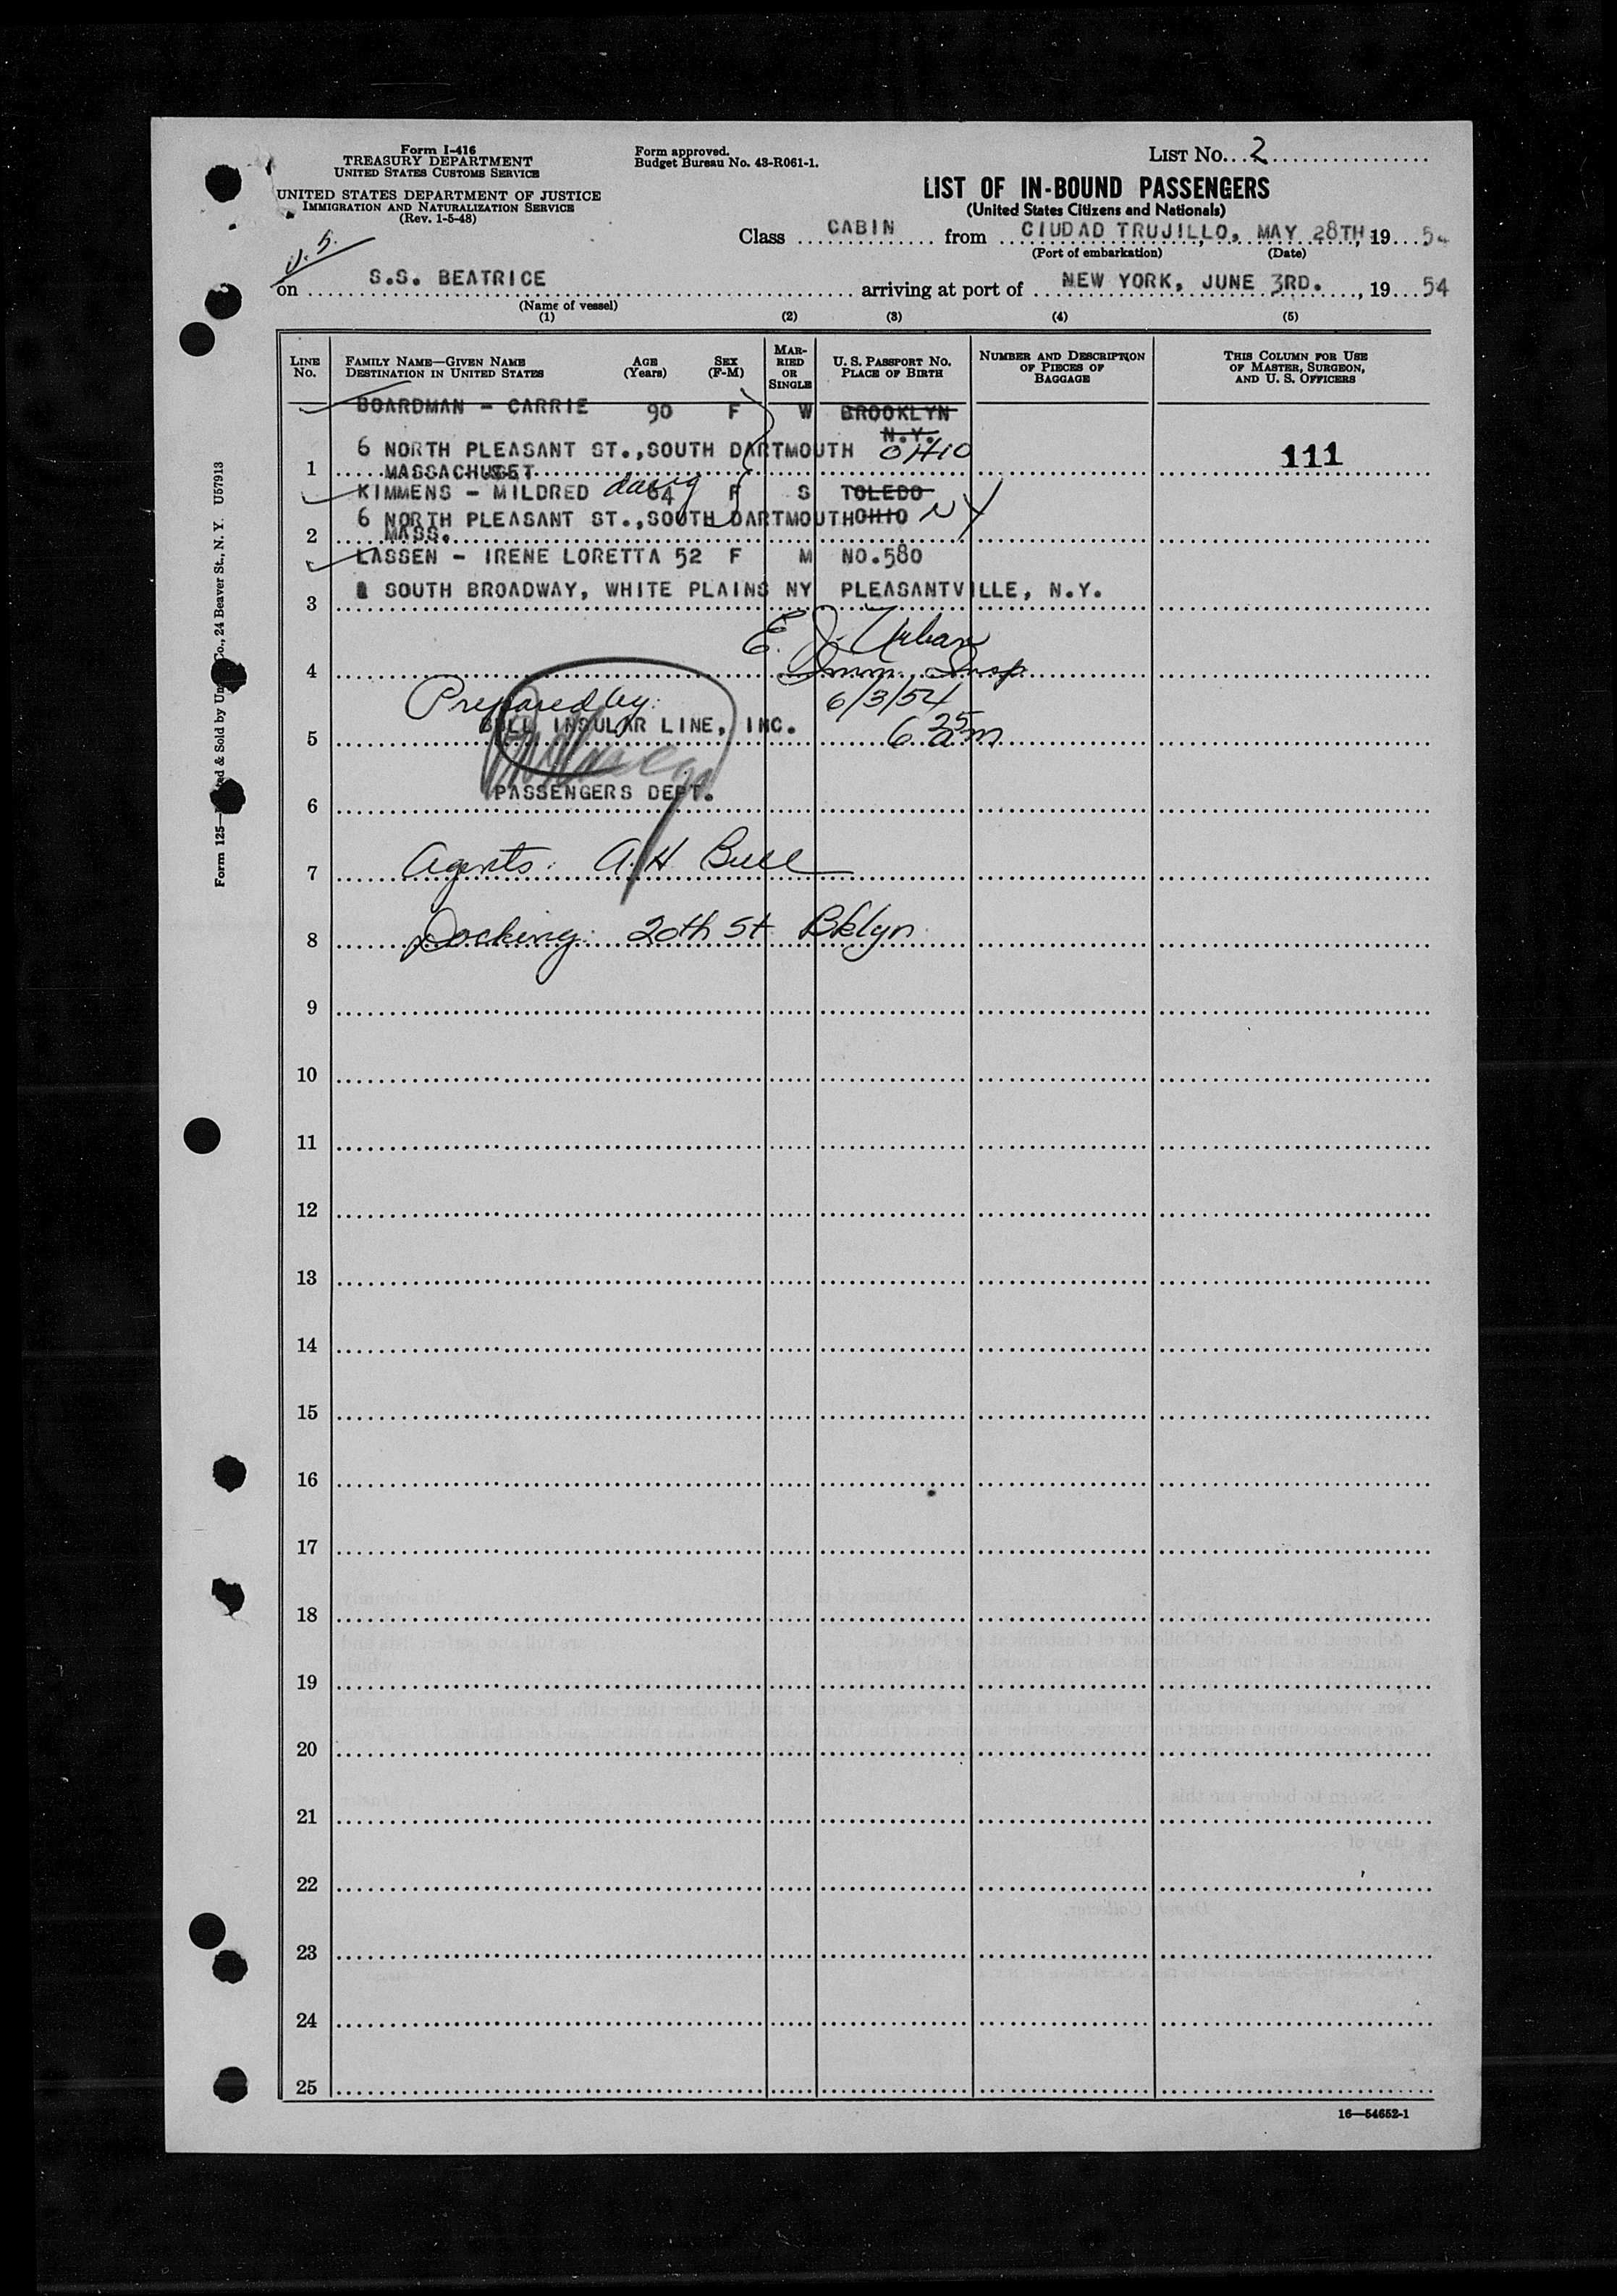 Form I-416
TREASURY DEPARTMENT
UNITED STATES CUSTOMS SERVICE
UNITED STATES DEPARTMENT OF JUSTICE
IMMIGRATION AND NATURALIZATION SERVICE
(Rev. 1-5-48)
Form approved.
Budget Bureau No. 43-R061-1.
LIST NO. 2
LIST OF IN-BOUND PASSENGERS
(United States Citizens and Nationals)
Class CABIN from CIUDAD TRUJILLO, MAY 28TH, 19 54
(Port of embarkation) (Date)
on S.S. BEATRICE arriving at port of NEW YORK, JUNE 3RD., 19 54
(Name of vessel)
(1) (2) (3) (4) (5)
LINE NO.
FAMILY NAME—GIVEN NAME AGE (Years) SEX (F-M)
DESTINATION IN UNITED STATES
MARRIED OR SINGLE
U. S. PASSPORT NO.
PLACE OF BIRTH
NUMBER AND DESCRIPTION
OF PIECES OF
BAGGAGE
THIS COLUMN FOR USE
OF MASTER, SURGEON,
AND U. S. OFFICERS
BOARDMAN - CARRIE 90 F W BROOKLYN
N.Y.
6 NORTH PLEASANT ST., SOUTH DARTMOUTH OHIO
1 MASSACHUSET 111
KIMMENS - MILDRED 64 F S TOLEDO
6 NORTH PLEASANT ST., SOUTH DARTMOUTH OHIO NY
2 MASS.
LASSEN - IRENE LORETTA 52 F M NO.580
3 SOUTH BROADWAY, WHITE PLAINS NY PLEASANTVILLE, N.Y.
E. J. Urban
4 Imm. Insp.
Prepared by: 6/3/54
5 BULL INSULAR LINE, INC. 6 25 am
6 PASSENGERS DEPT.
7 Agents: A. H. Bull
8 Docking: 20th St Bklyn
9
10
11
12
13
14
15
16
17
18
19
20
21
22
23
24
25
16—54652-1